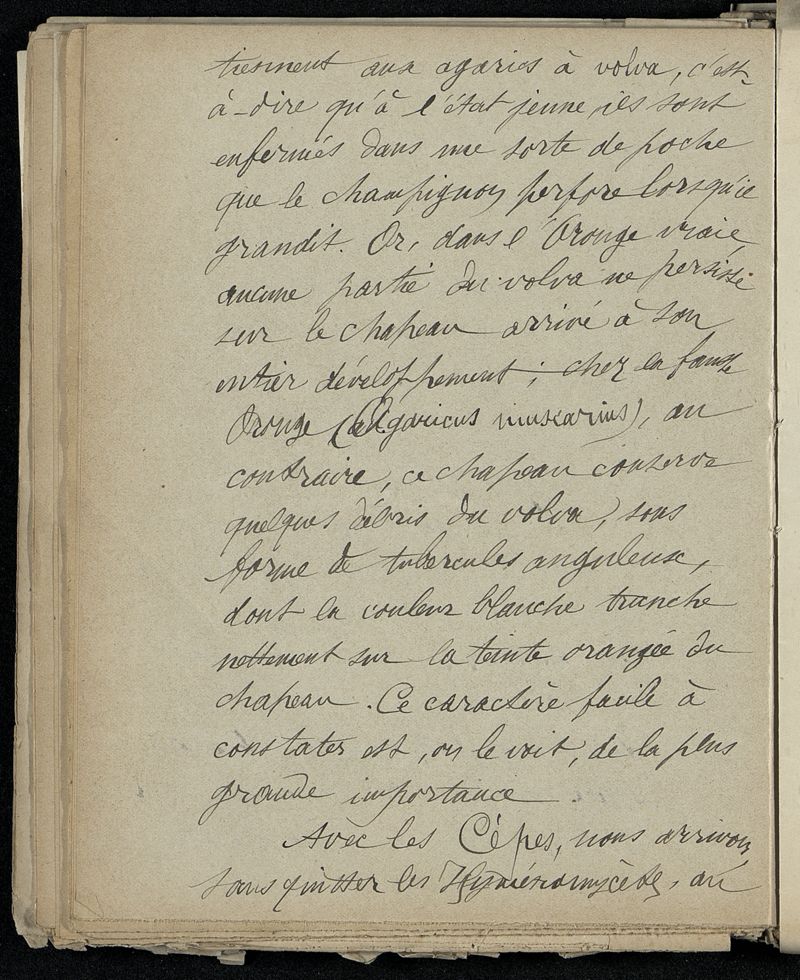 tiennent aux agarics à volva, c'est-
à-dire qu'à l'état jeune, ils sont
enfermés dans une sorte de poche
que le champignon perfore lorsqu'il
grandit. Or, dans l'Oronge vraie,
aucune partie du volva ne persiste
sur le chapeau arrivé à son
entier développement ; chez la fausse
Oronge (Agaricus muscarius), au
contraire, ce chapeau conserve
quelques débris du volva, sous
forme de tubercules anguleux,
dont la couleur blanche tranche
nettement sur la teinte orangée du
chapeau. Ce caractère facile à
constater est, on le voit, de la plus
grande importance.
Avec les Cépes, nous arrivons,
sans quitter les Hyménomycètes, au